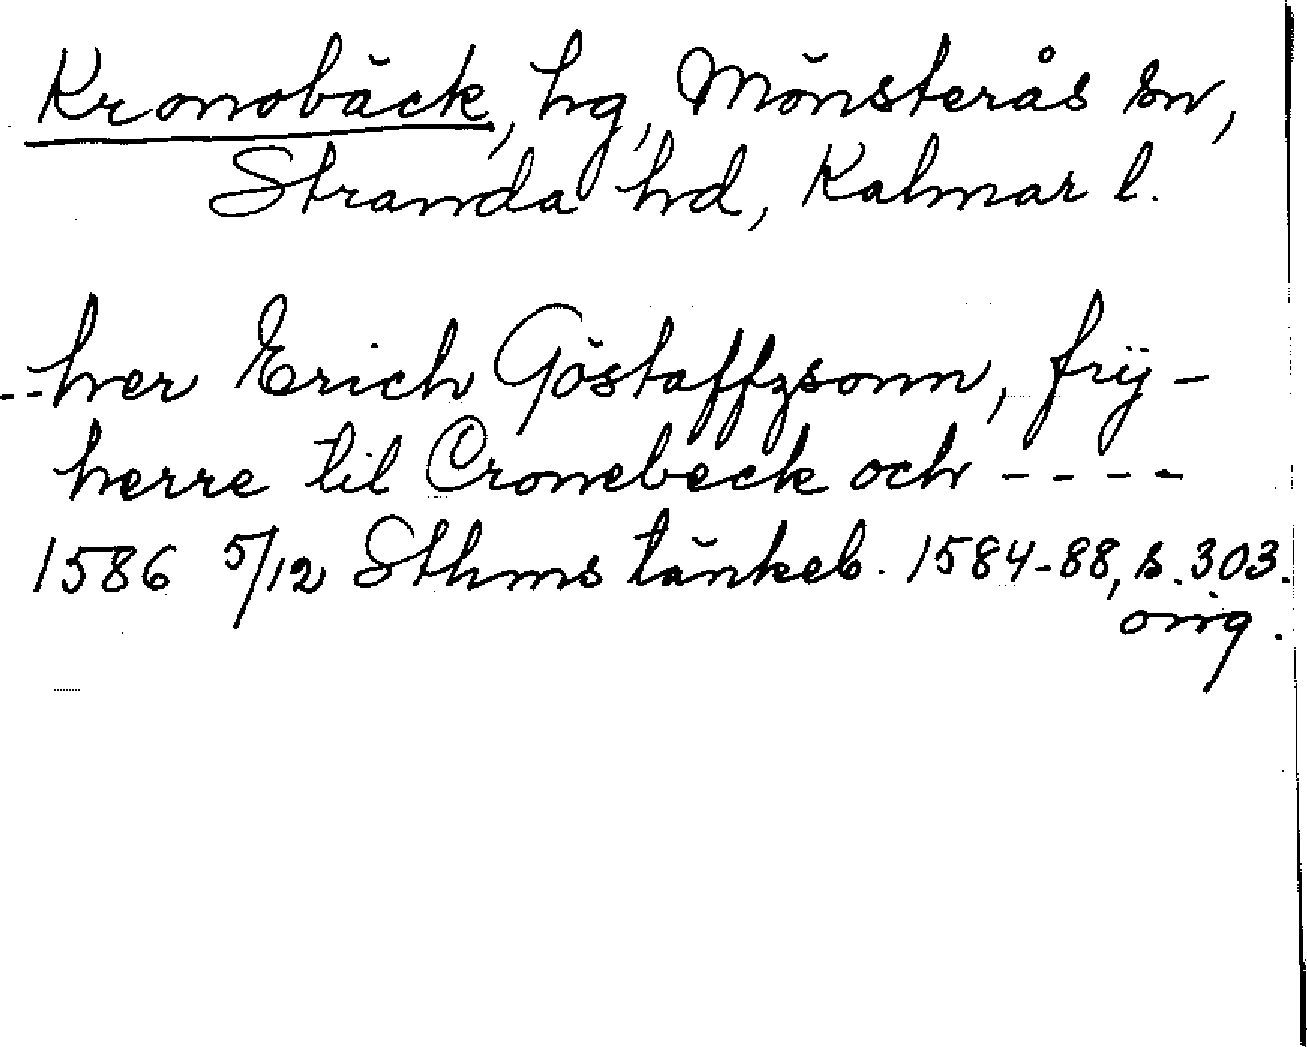 Kronobäck, hg, Mönsterås sn,
Stranda hd, Kalmar l.
--her Erich Göstaffzsonn, frÿ-
herre til Cronebeck och ----
1586 5/12 Sthms tänkeb. 1584-88, s. 303.
orig.